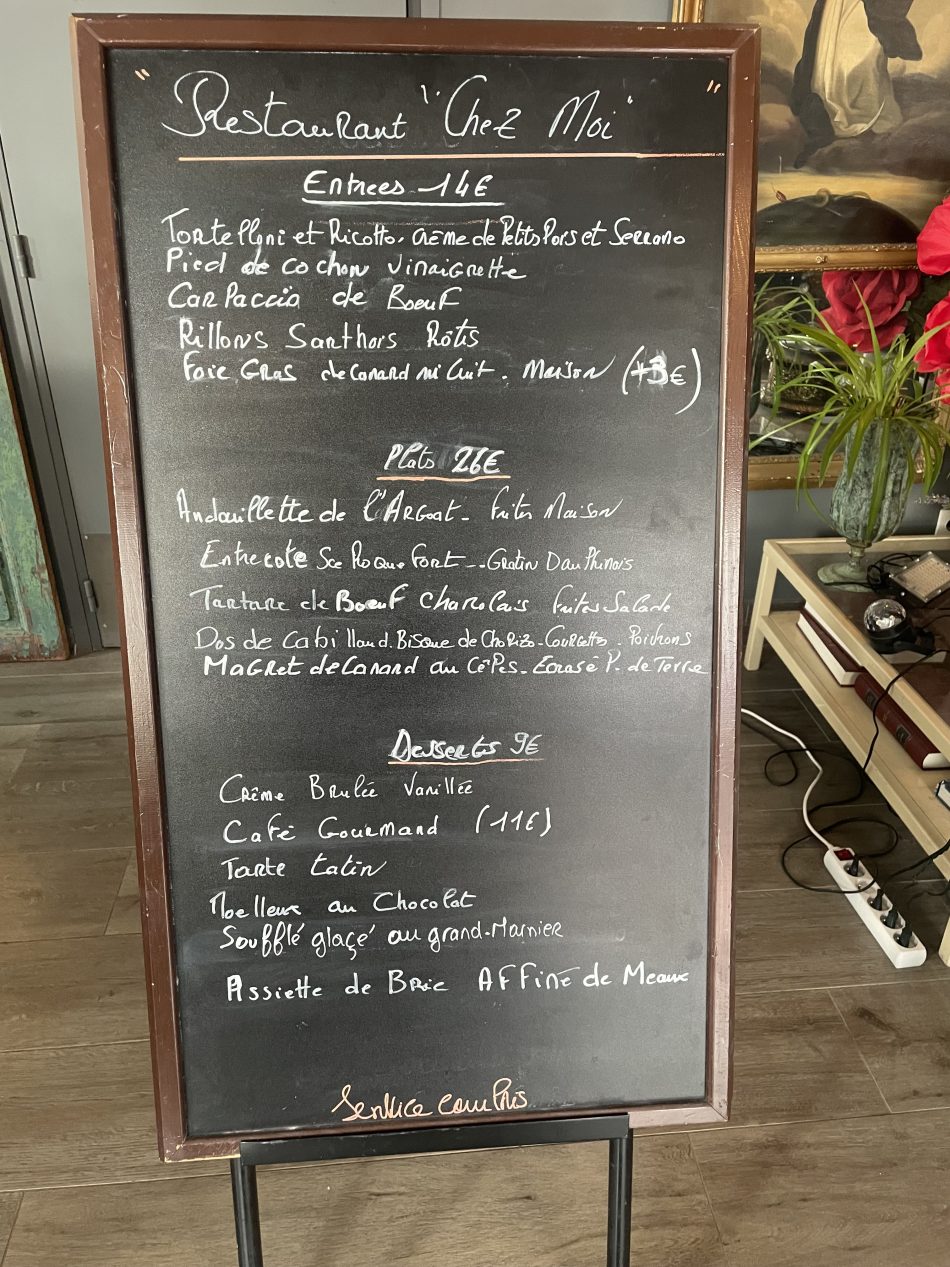 " Restaurant "Chez Moi" "
Entrees 14€
Tortellyni et Ricotto. crème de Petits Pois et Serrano
Pied de cochon vinaigrette
Carpaccio de Boeuf
Rillons Santhors Rôtis
Foie Gras de Canard mi Cuit. Maison (+3€)
Plats 26€
Andouillette de l'Argoat - Frites Maison
Entrecote Sce Roquefort -- Gratin Dauphinois
Tartare de Boeuf Charolais Frites Salade
Dos de Cabillaud. Bisque de Chorizo - Courgettes. Poivrons
Magret de Canard au Cêpes - Ecrasé P. de Terre
Desserts 9€
Crème Brulée Vanillée
Café Gourmand (11€)
Tarte tatin
Moelleux au Chocolat
Soufflé glaçé au grand-Marnier
Assiette de Brie Affiné de Meaux
Service compris